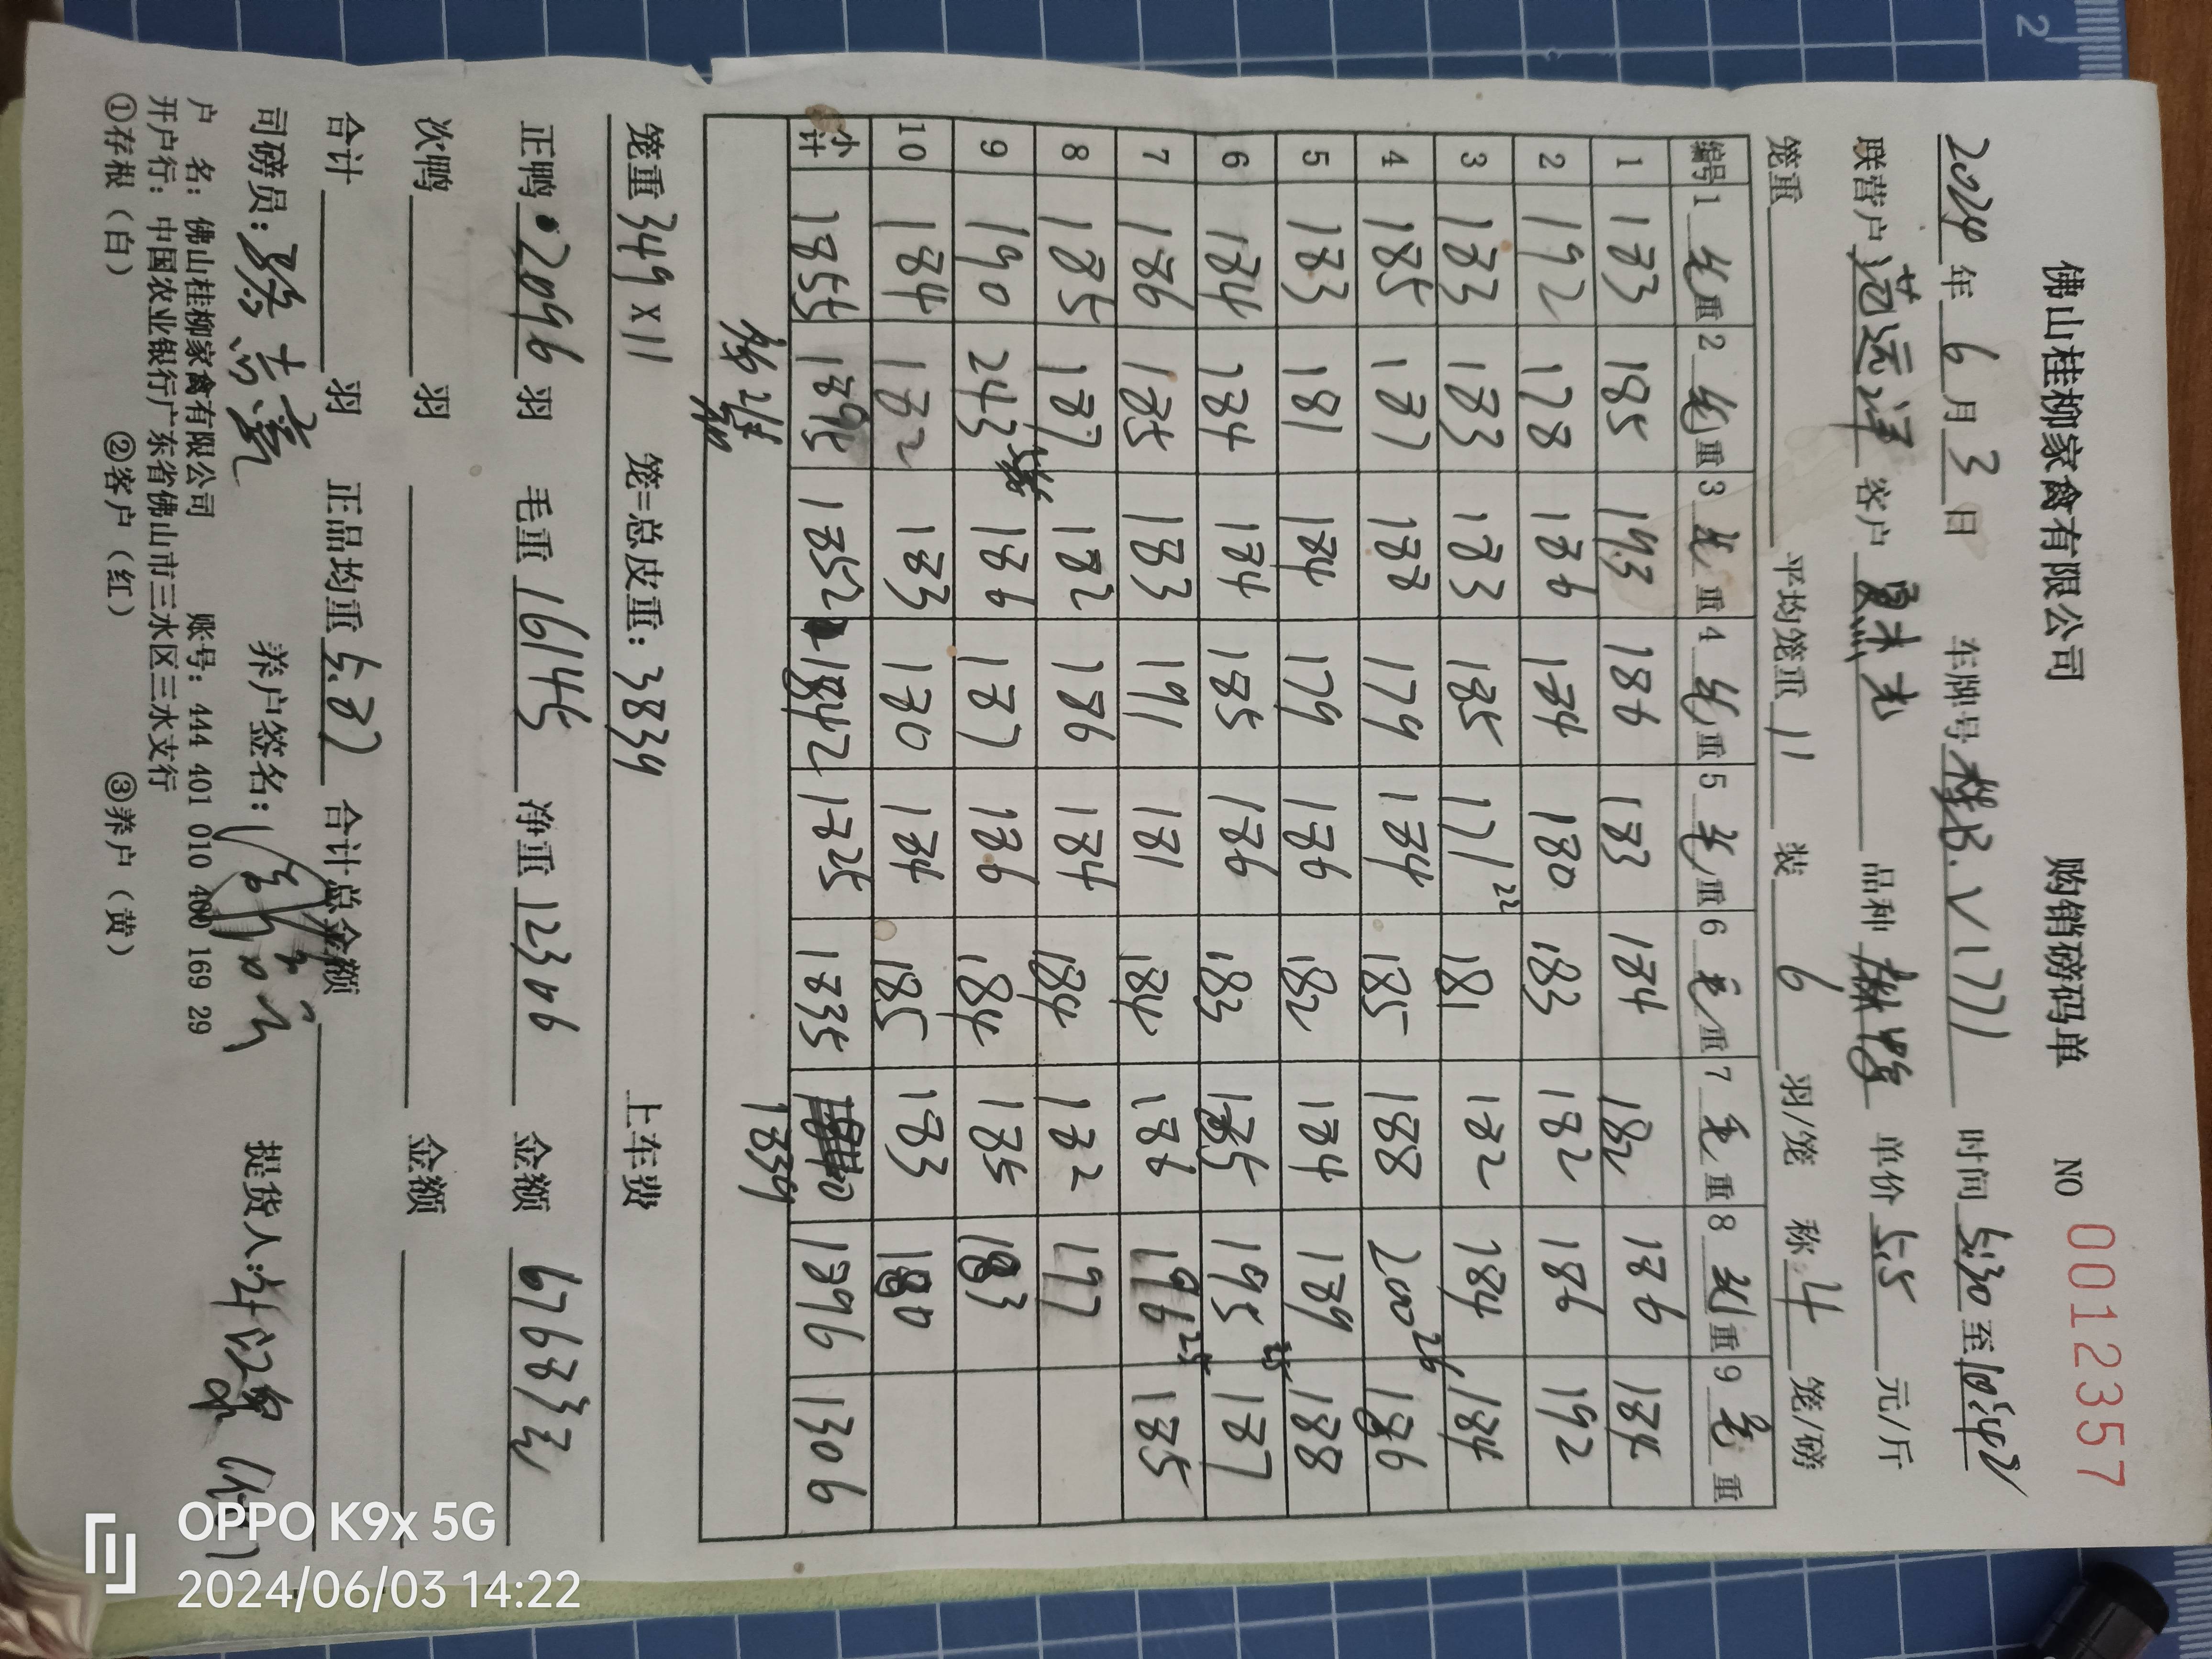 佛山桂柳家禽有限公司 购销磅码单 NO 0012357
2024年6月3日 车牌号 V1771 时间 5:30 至
联营户 范远洋 客户 品种 单价 5.5 元/斤
笼重 平均笼重 11 装 6 羽/笼 称 4 笼/磅
编号 1 毛重 2 毛重 3 毛重 4 毛重 5 毛重 6 毛重 7 毛重 8 毛重 9 毛重
1 183 185 193 186 183 184 182 186 184
2 192 178 186 184 180 183 182 186 192
3 183 183 183 185 171 22 181 182 184 184
4 185 187 188 179 184 185 188 200 26 186
5 183 181 184 179 186 182 184 189 188
6 184 184 184 185 186 183 185 195 187
7 186 185 183 191 181 184 186 196 25 185
8 185 187 182 186 184 184 182 197
9 190 243 186 187 186 184 185 183
10 184 182 183 180 184 185 183 180
小计 1855 1895 1852 1842 1825 1835 1896 1306
1839
笼重 349 X 11 笼=总皮重: 3839 上车费
正鸭 2096 羽 毛重 16145 净重 12306 金额 67683元
次鸭 羽 金额
合计 羽 正品均重 5.87 合计总金额
司磅员: 养户签名: 提货人:
户 名: 佛山桂柳家禽有限公司 账号: 444 401 010 400 169 29
开户行: 中国农业银行广东省佛山市三水区三水支行
①存根（白） ②客户（红） ③养户（黄）
2
OPPO K9x 5G
2024/06/03 14:22